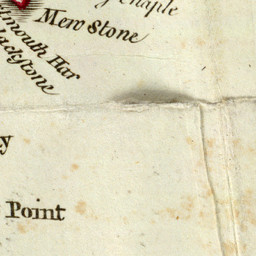 Mew Stone
mouth Har
lackstone
y
Point